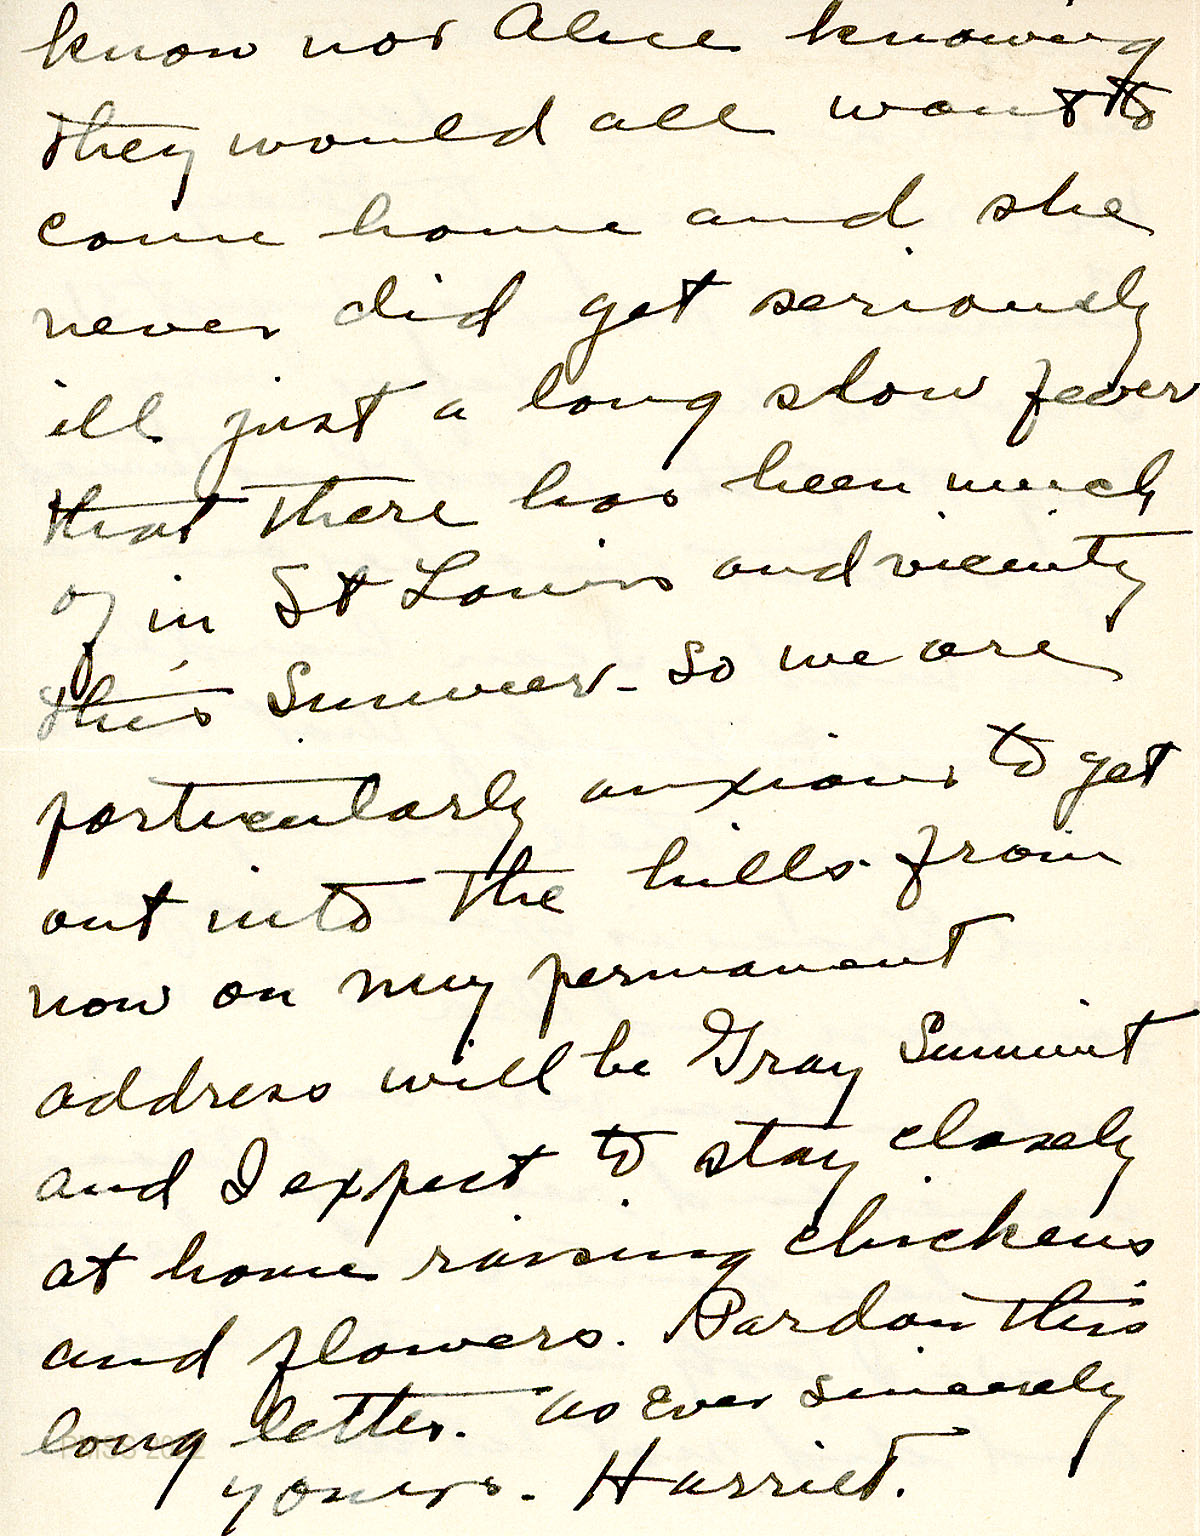 know nor Alice knowing
they would all want to
come home and she
never did get seriously
ill just a long slow fever
that there has been much
of in St Louis and vicinity
this Summer - so we are
particularly anxious to get
out into the hills. from
now on my permanent
address will be Gray Summit
and I expect to stay closely
at home raising chickens
and flowers. Pardon this
long letter. as ever sincerely
yours - Harriet.
PMSS 2022